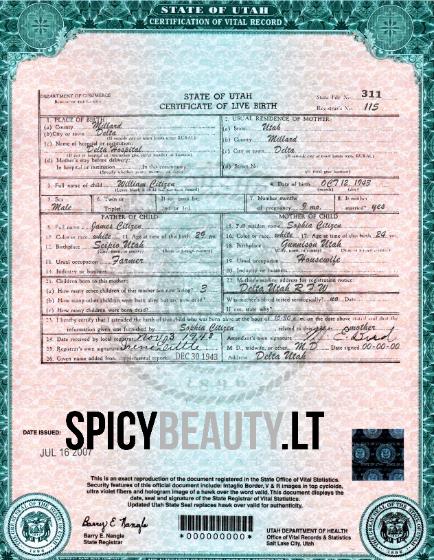 STATE OF UTAH
CERTIFICATION OF VITAL RECORD
DEPARTMENT OF COMMERCE
STATE OF UTAH
CERTIFICATE OF LIVE BIRTH
State File No. 311
Registrar's No. 115
1. PLACE OF BIRTH
(a) County Millard
(b) City or town Delta
(c) Name of hospital or institution:
Delta Hospital
(d) Mother's stay before delivery:
In hospital or institution
In this community
2. USUAL RESIDENCE OF MOTHER:
(a) State Utah
(b) County Millard
(c) City or town Delta
(d) Street No.
3. Full name of child William Citizen
4. Date of birth OCT 12, 1943
5. Sex Male
6. Twin or Triplet
7. Number months of pregnancy 9 mo.
8. Is mother married? yes
FATHER OF CHILD
Full name James Citizen
Color or race white
Age at time of this birth 29 yrs.
12. Birthplace Scipio Utah
Usual occupation Farmer
14. Industry or business
MOTHER OF CHILD
Full maiden name Sophia Citizen
16. Color or race white 17. Age at time of this birth 24 yrs.
18. Birthplace Gunnison Utah
19. Usual occupation Housewife
20. Industry or business
21. Children born to this mother:
(a) How many other children of this mother are now living? 3
(b) How many other children were born alive but are now dead?
(c) How many children were born dead?
22. Mother's mailing address for registration notice:
Delta Utah R F W
no
23. I hereby certify that I attended the birth of this child who was born alive at the hour of 10:30 on the date above stated and that the
information given was furnished by Sophia Citizen related to this child as mother
24. Date received by local registrar Nov 3 1943
Attendant's own signature
25. Registrar's own signature
M.D., midwife, or other M D Date signed 00-00-00
26. Given name added from supplemental report DEC 30 1943
Address Delta Utah
SPICYBEAUTY.LT
DATE ISSUED:
JUL 16 2007
This is an exact reproduction of the document registered in the State Office of Vital Statistics.
Security features of this official document include: Intaglio Border, V & R images in top cycloids,
ultra violet fibers and hologram image of a hawk over the word valid. This document displays the
date, seal and signature of the State Registrar of Vital Statistics.
Updated Utah State Seal replaces hawk over valid for authenticity.
Barry E. Nangle
Barry E. Nangle
State Registrar
*000000000*
UTAH DEPARTMENT OF HEALTH
Office of Vital Records & Statistics
Salt Lake City, Utah